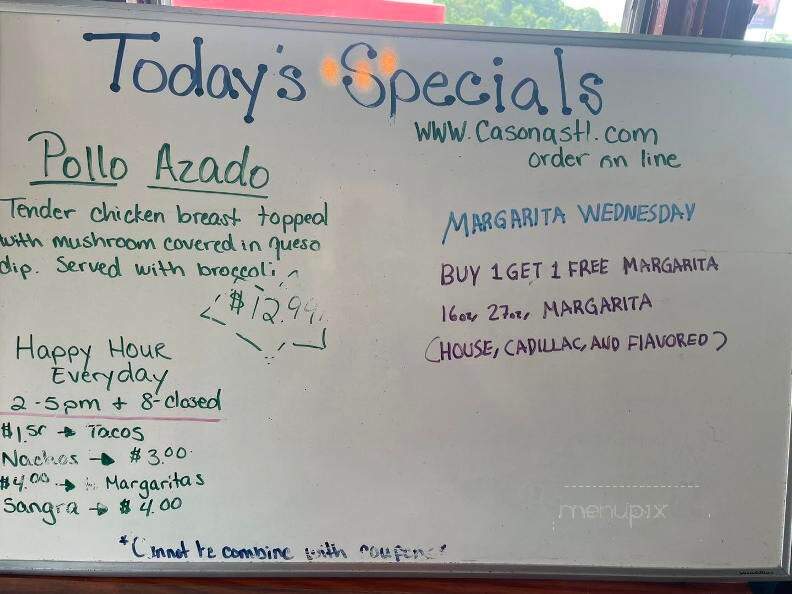 Today's Specials
www.Casonastl.com
order on line
Pollo Azado
Tender chicken breast topped
with mushroom covered in queso
dip. Served with broccoli
$12.99
Happy Hour
Everyday
2-5pm + 8-closed
$1.50 → Tacos
Nachos → $3.00
$4.00 → Margaritas
Sangra → $4.00
MARGARITA WEDNESDAY
BUY 1 GET 1 FREE MARGARITA
16oz, 27oz, MARGARITA
(HOUSE, CADILLAC, AND FlAVORED)
*Cannot be combine with coupons*
menupix